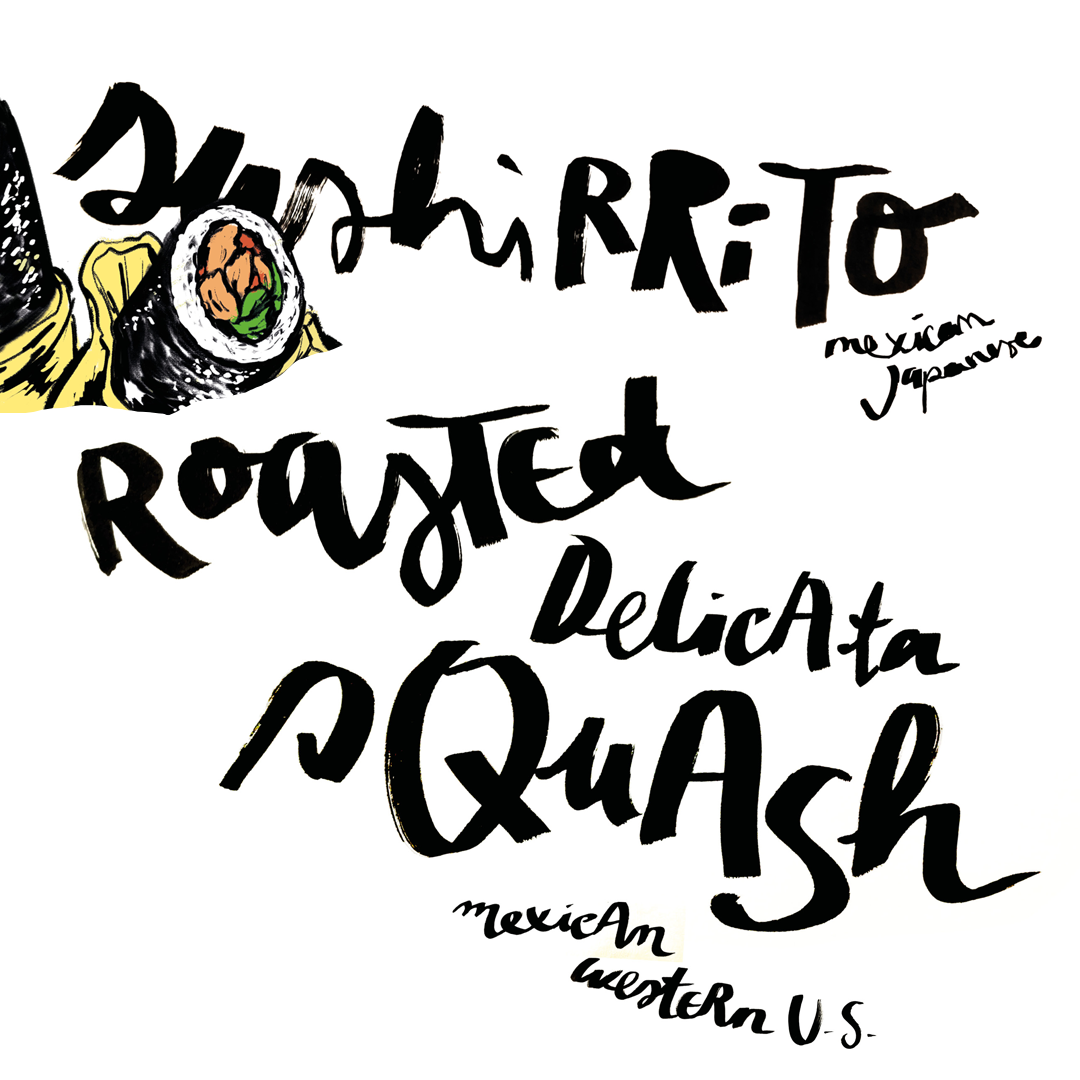 sushiRRiTO
mexican
Japanese
ROasTEd
DelicAta
sQuAsh
mexicAn
westeRn U.S.